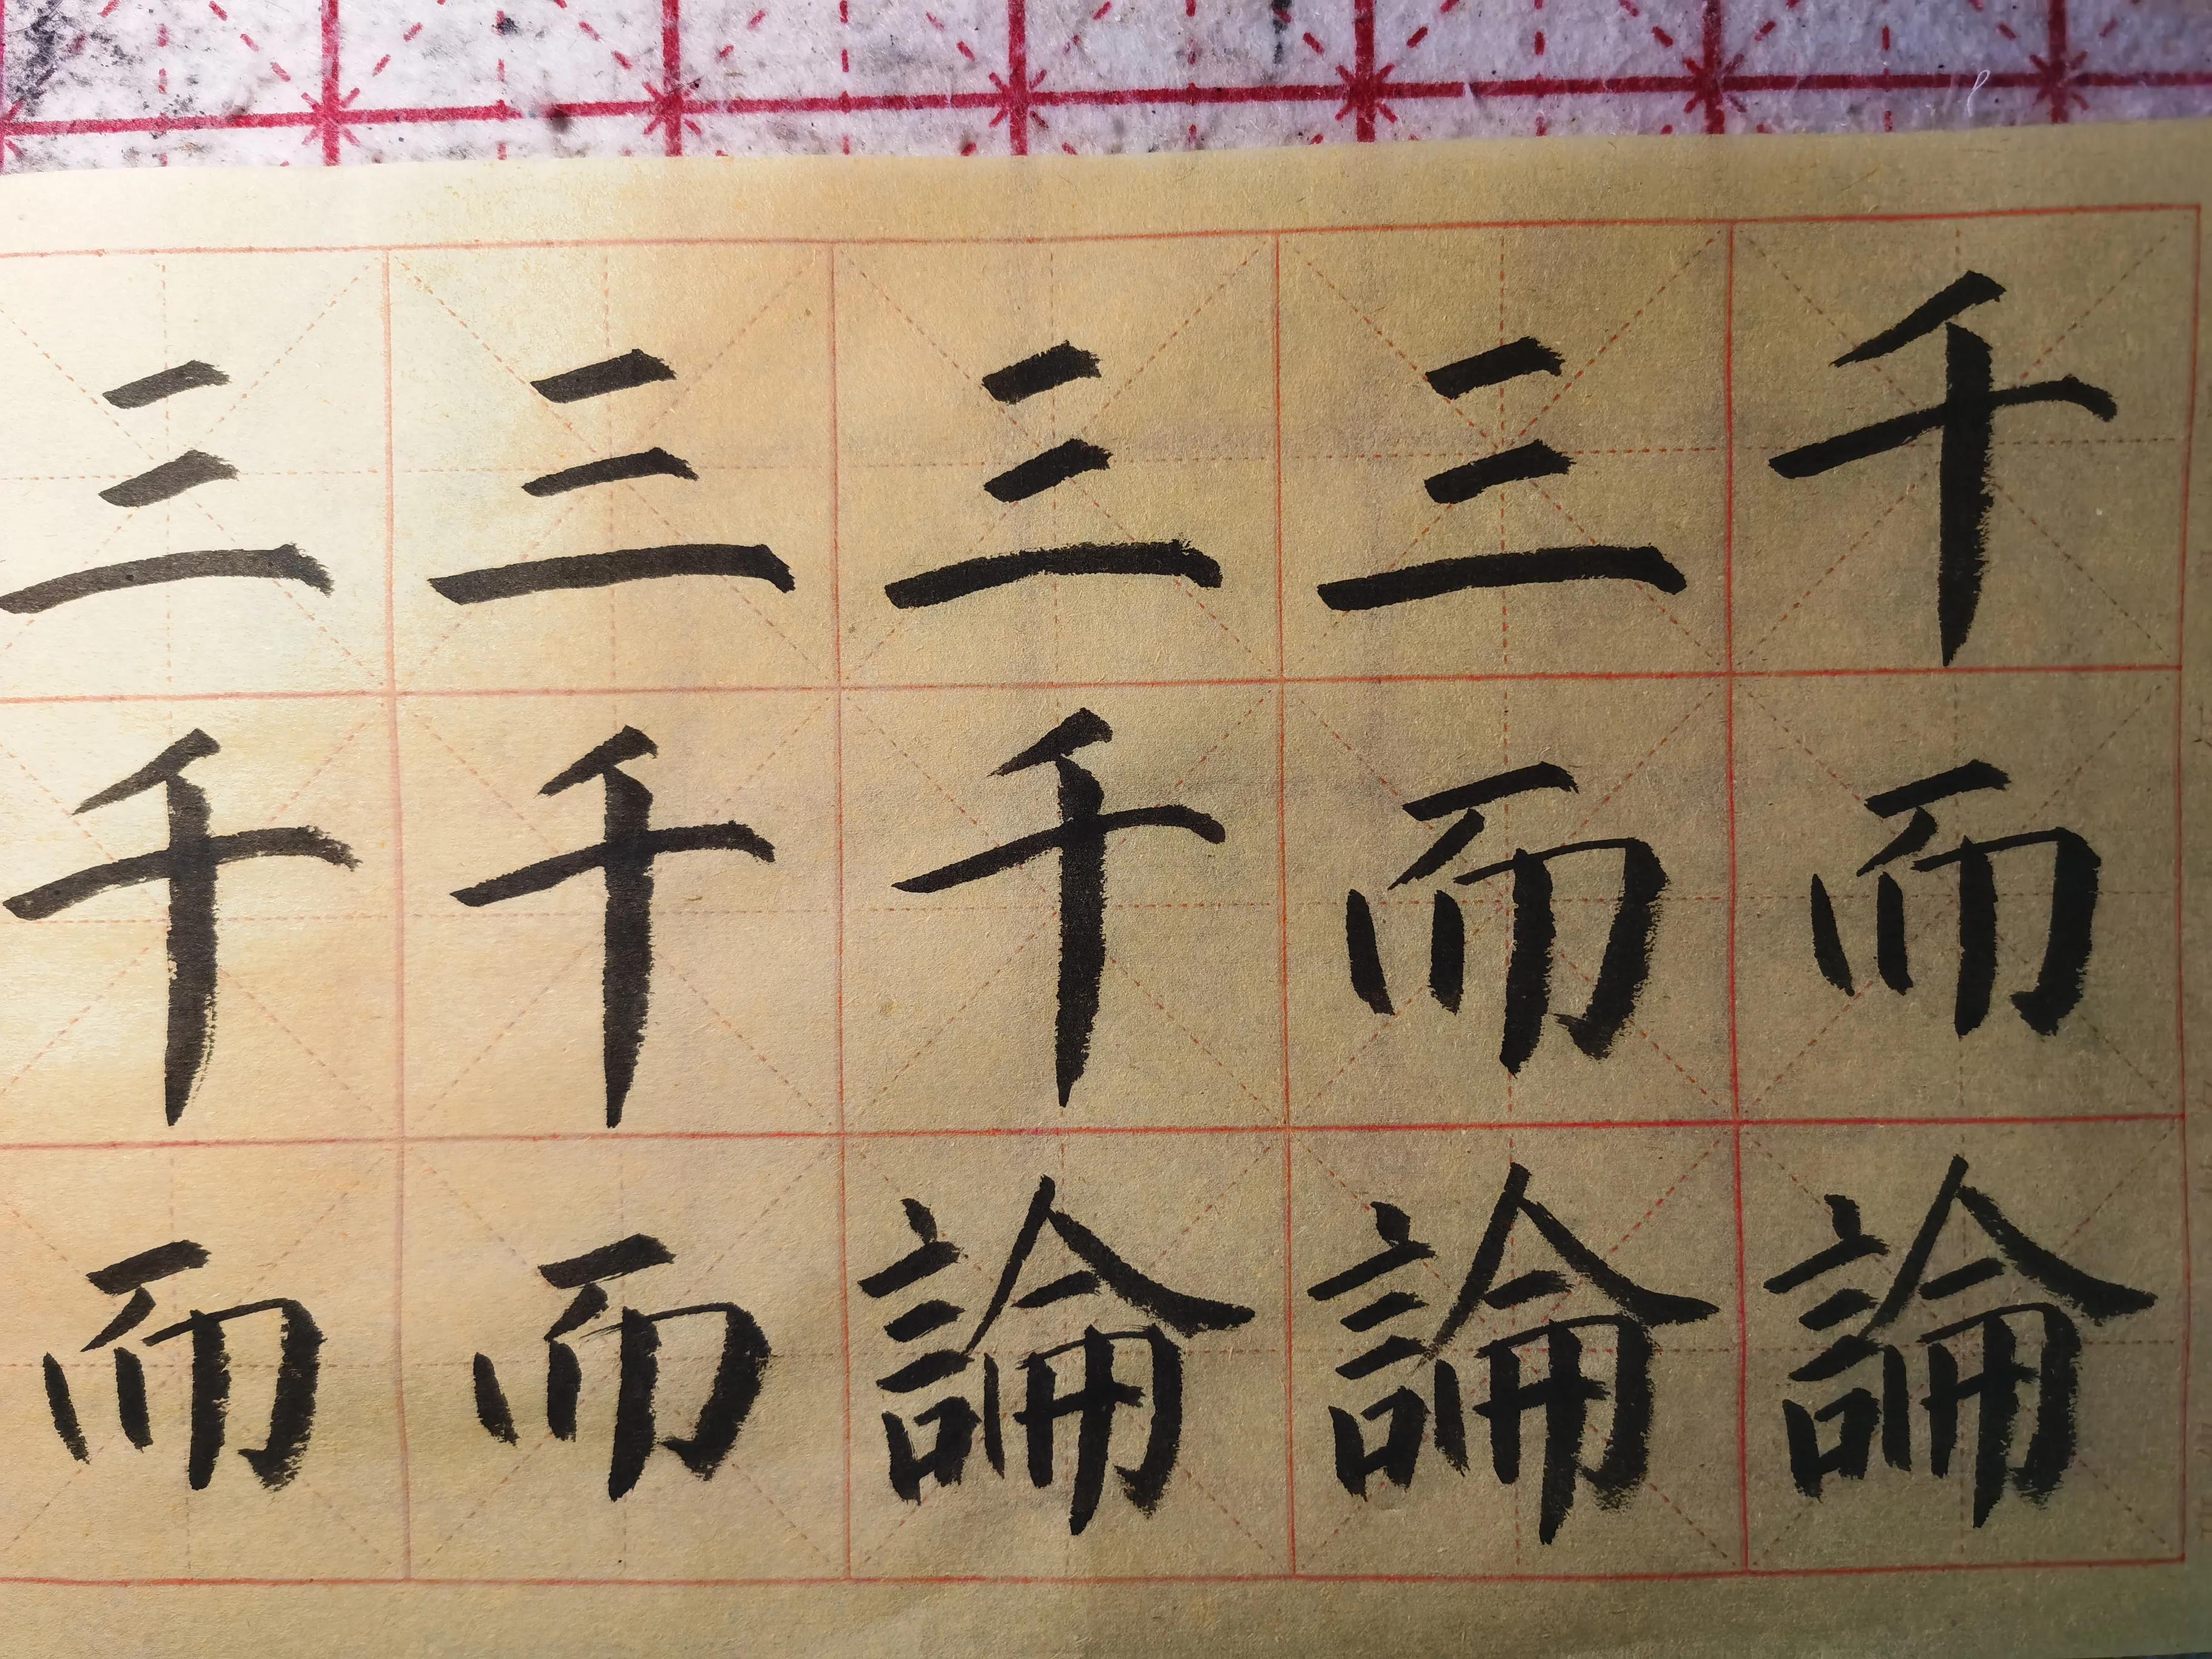 三三三三千
千千千而而
而而論論論